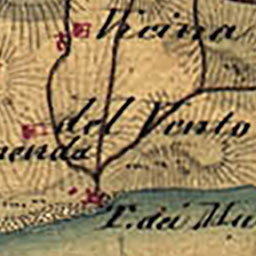 Vicina
del Vento
enda
T. dei Mu